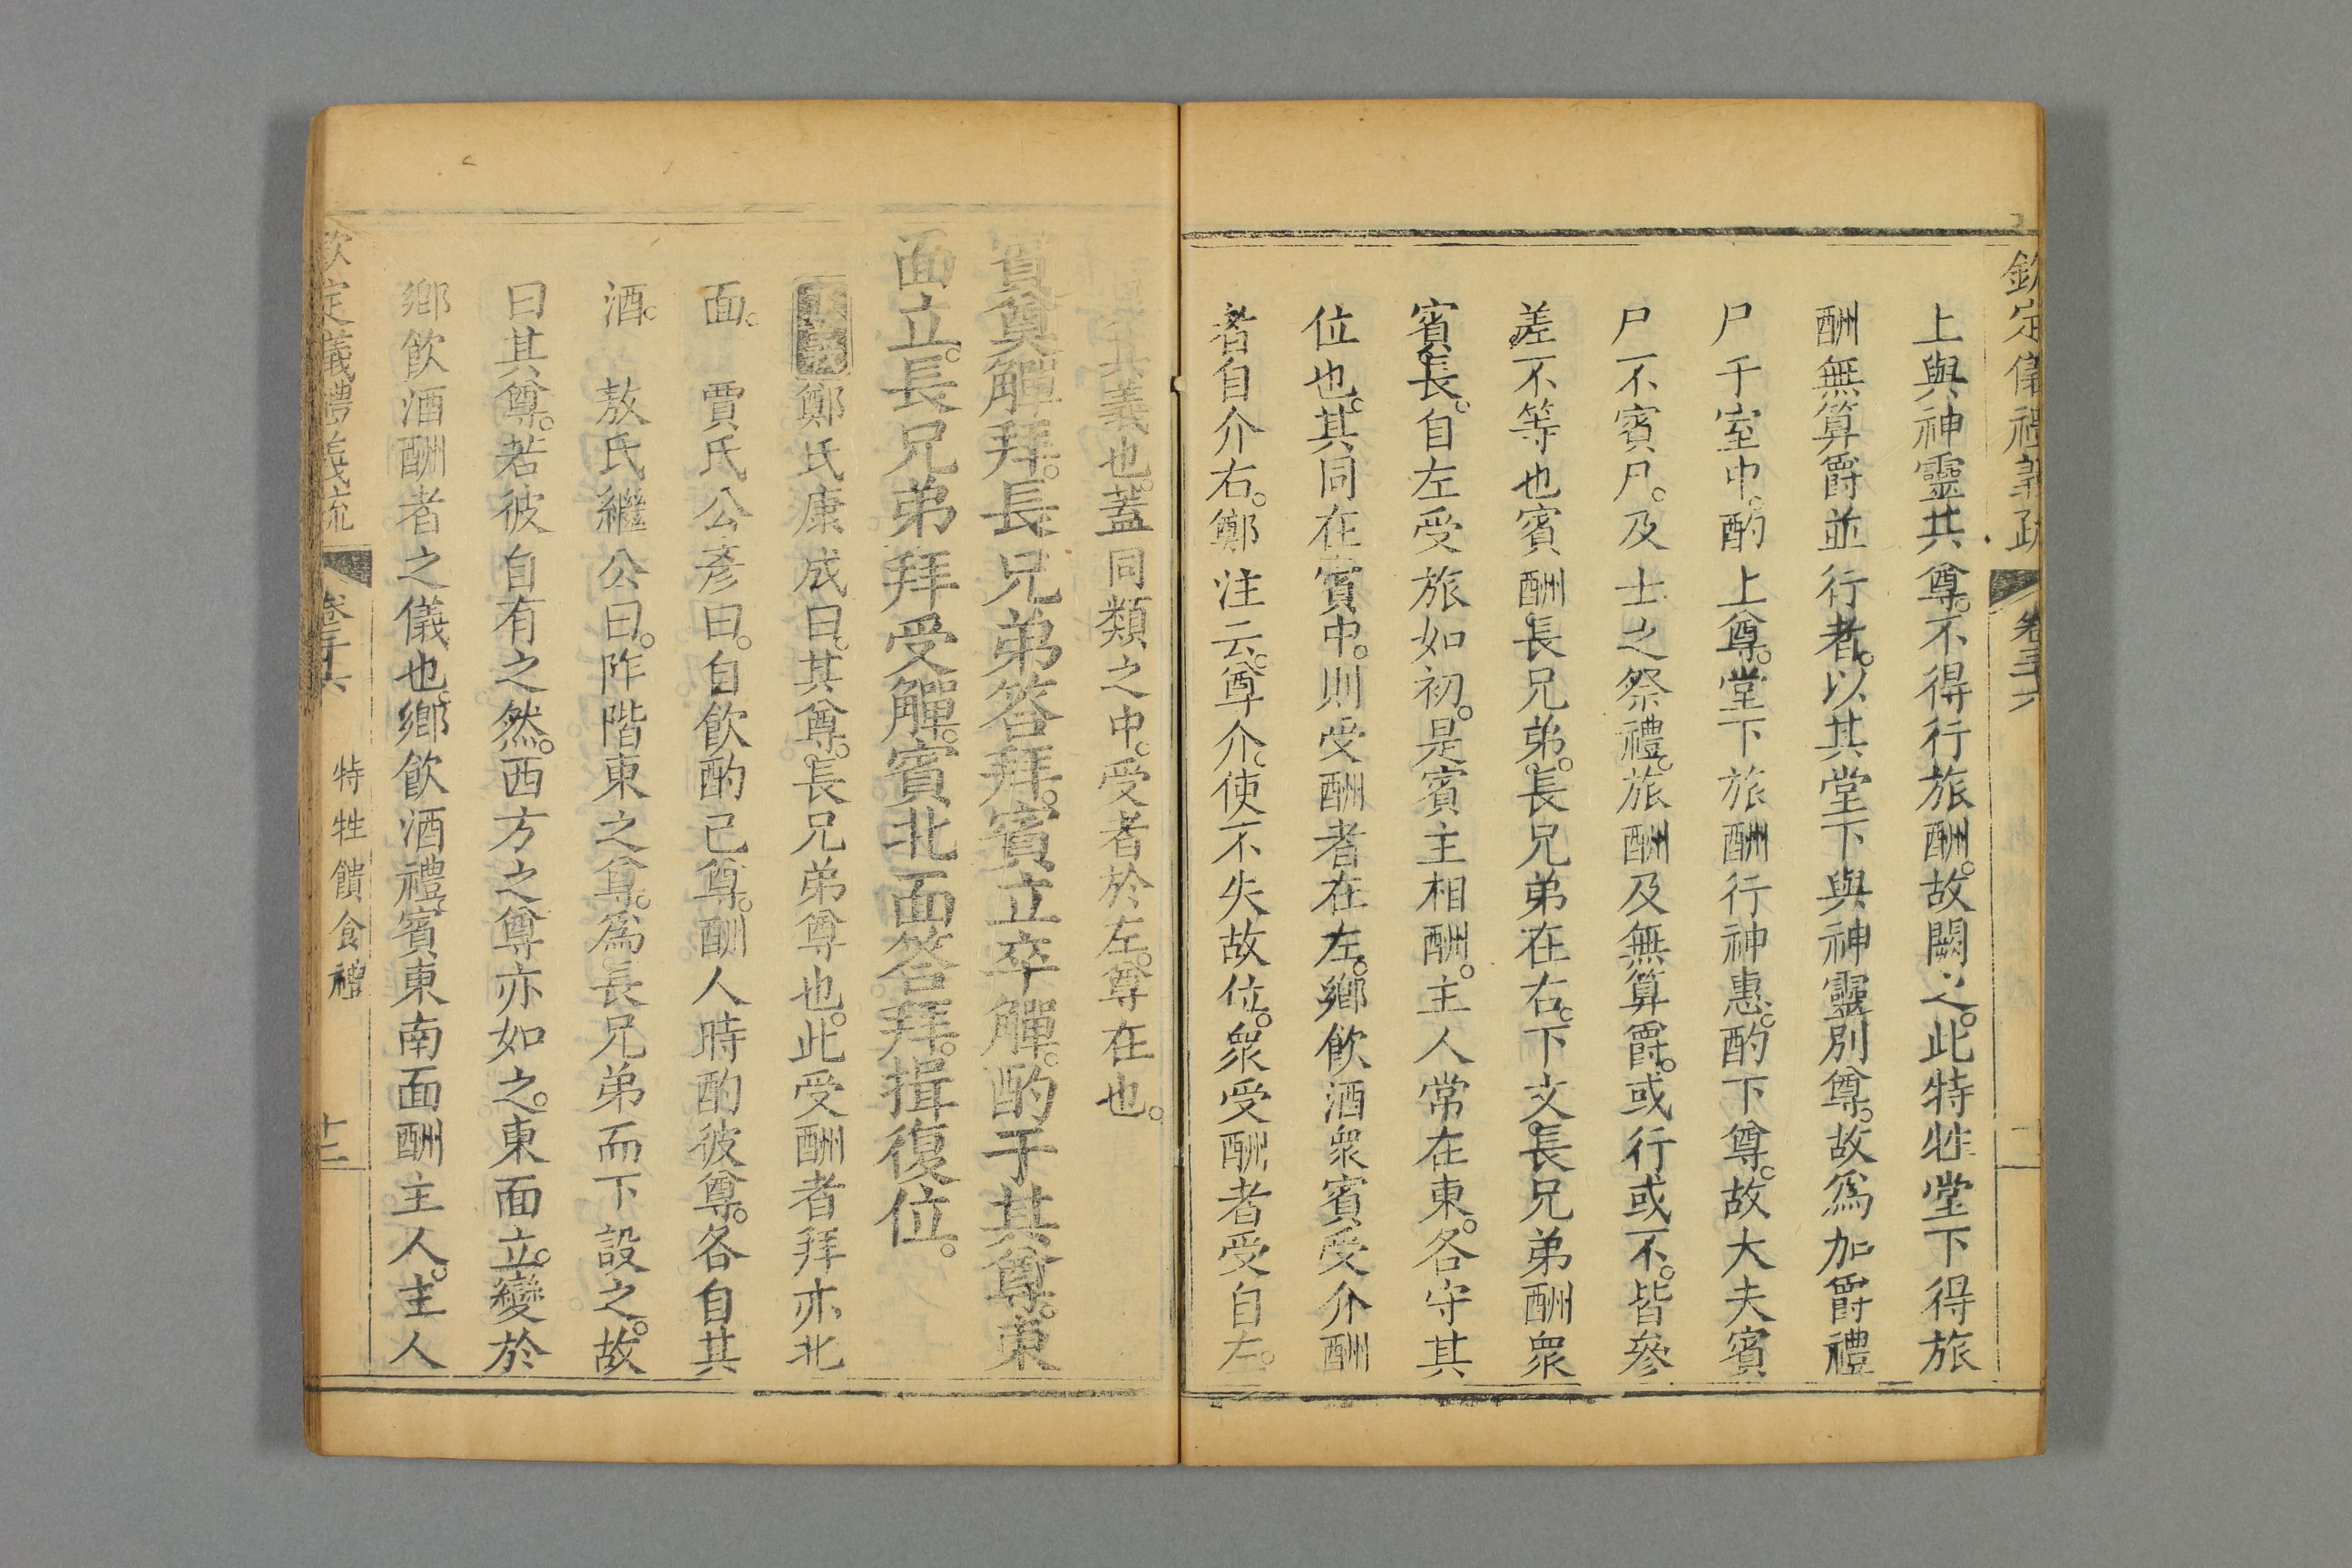 欽定儀禮義疏 卷三十六
上與神靈共尊。不得行旅酬。故闕之。此特牲堂下得旅
酬無算爵並行者。以其堂下與神靈別尊。故爲加爵禮
尸于室中。酌上尊。堂下旅酬行神惠。酌下尊。故大夫賓
尸不賓尸。及士之祭禮。旅酬及無算爵。或行或不。皆參
差不等也賓酬長兄弟。長兄弟在右。下文長兄弟酬衆
賓長。自左受旅如初。是賓主相酬。主人常在東。各守其
位也。其同在賓中。則受酬者在左。鄉飲酒衆賓受介酬
者自介右。鄭注云。尊介。使不失故位。衆受酬者受自左。
其義也。蓋同類之中。受者於左。尊在也。
賓奠觶拜。長兄弟答拜。賓立卒觶。酌于其尊。東
面立。長兄弟拜受觶。賓北面答拜。揖復位。
鄭氏康成曰。其尊。長兄弟尊也。此受酬者拜亦北
面。 賈氏公彥曰。自飲酌己尊。酬人時酌彼尊。各自其
酒。 敖氏繼公曰。阼階東之尊。爲長兄弟而下設之。故
曰其尊。若彼自有之然。西方之尊亦如之。東面立。變於
鄉飲酒酬者之儀也。鄉飲酒禮。賓東南面酬主人。主人
欽定儀禮義疏 卷三十六 特牲饋食禮 十二